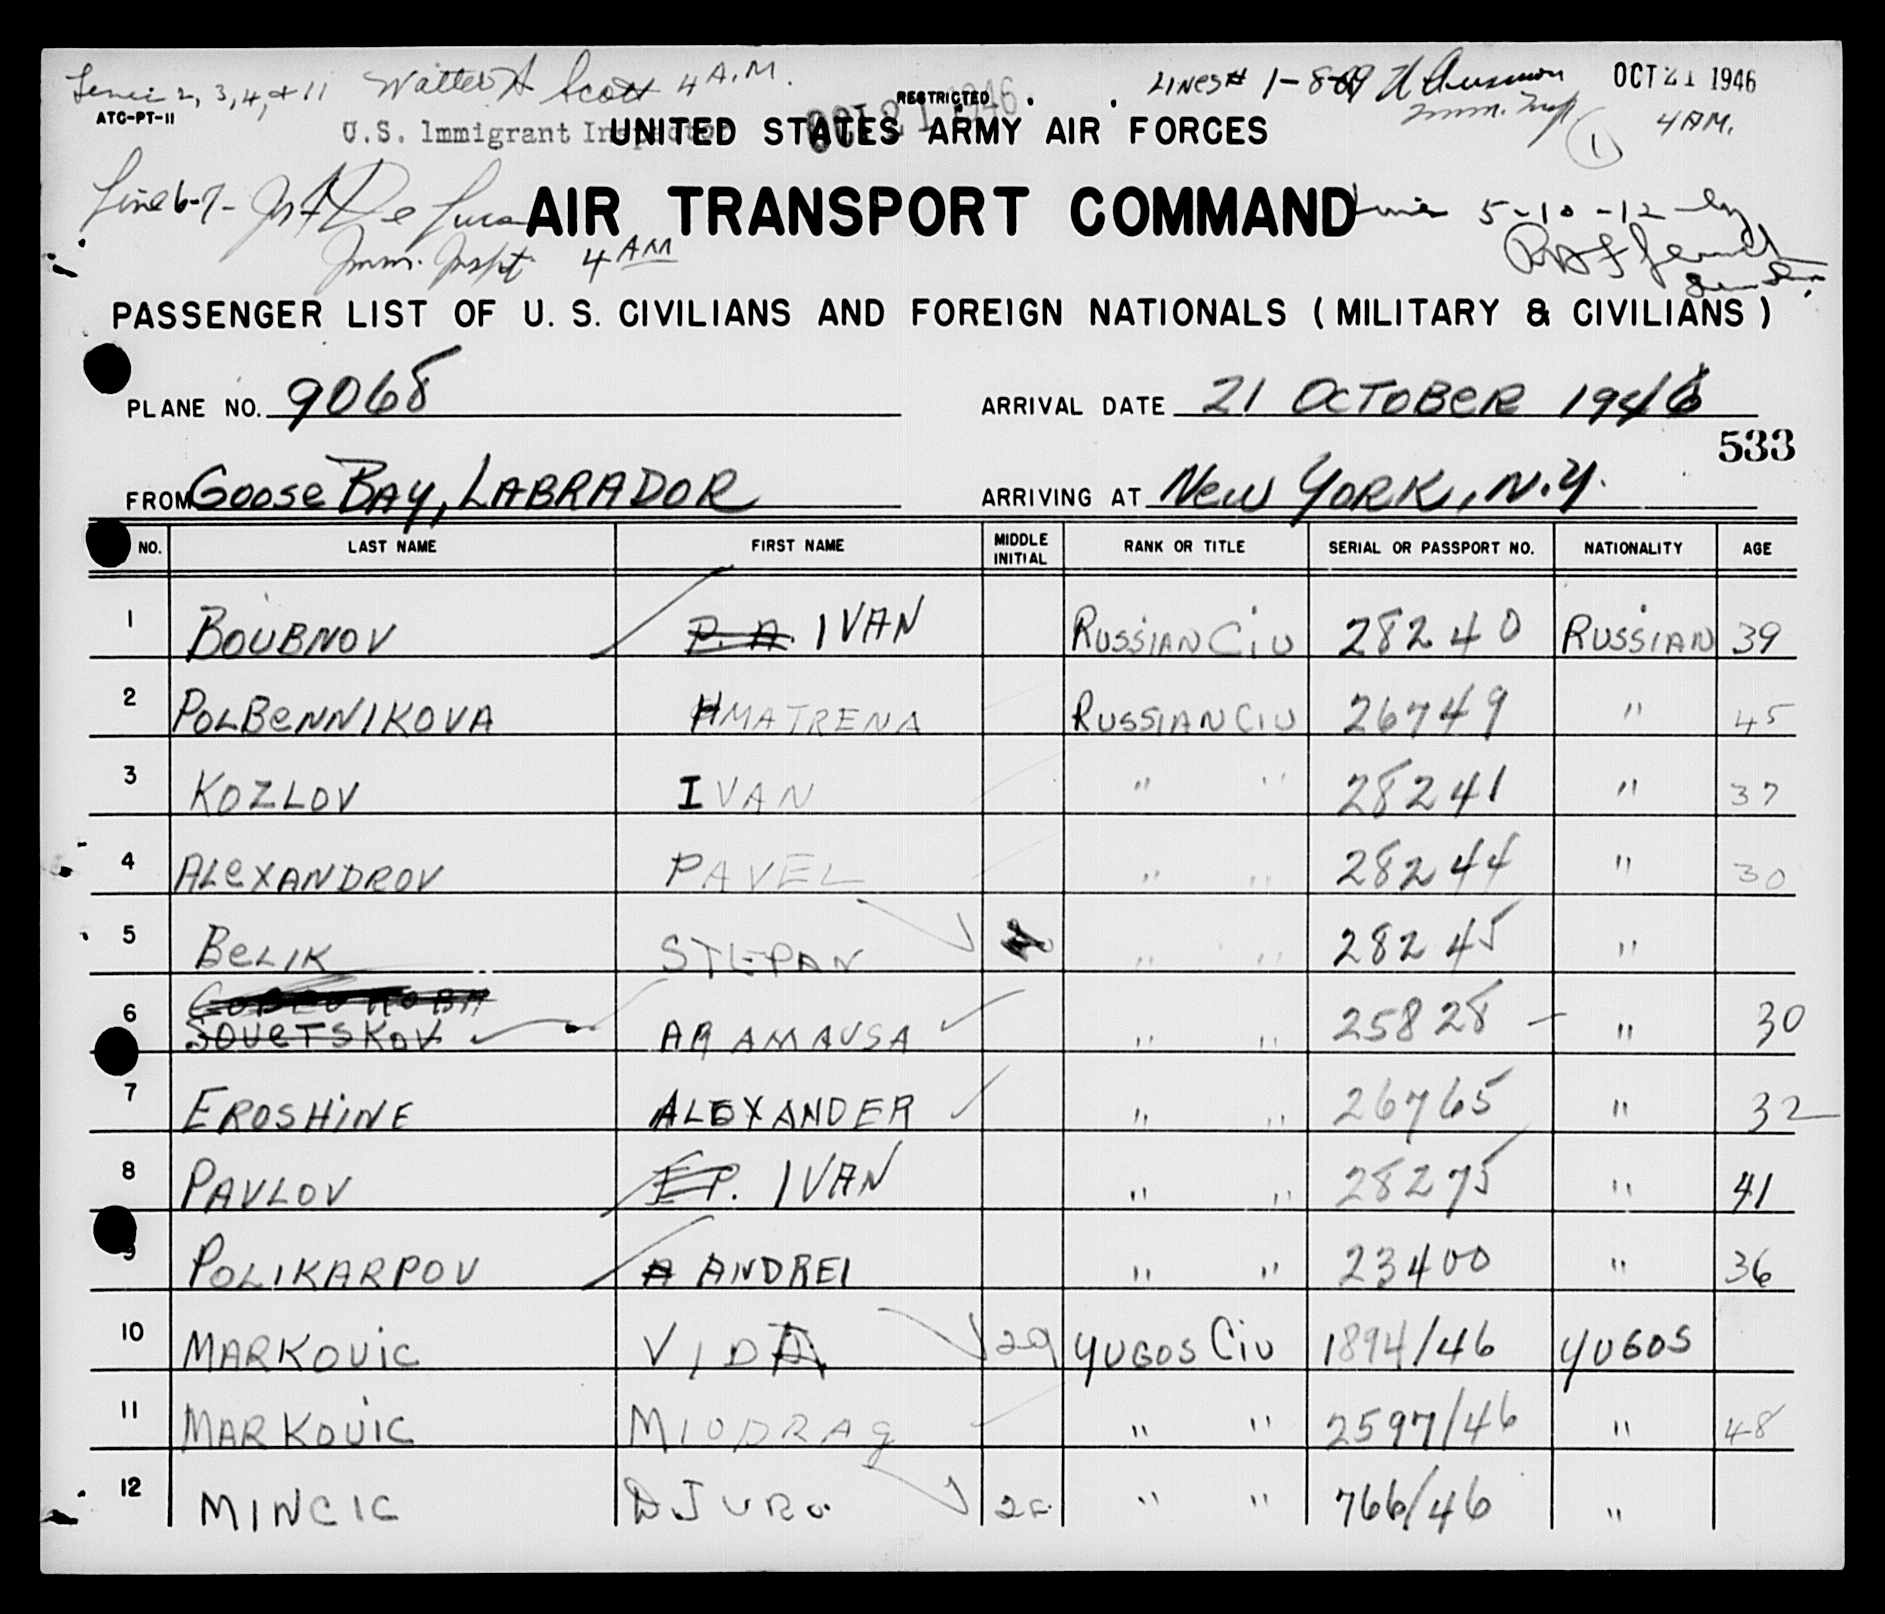 Lines 2, 3, 4, & 11 Walter A Scott 4 A.M.
RESTRICTED
LINES# 1-8-9
OCT 21 1946
ATC-PT-11
U.S. Immigrant Inspector
OCT 21 1946
Imm. Insp.
4 AM.
1
UNITED STATES ARMY AIR FORCES
Line 6-7- De Luca
AIR TRANSPORT COMMAND
Lines 5-10-12 by
Imm. Inspt 4 AM
PASSENGER LIST OF U. S. CIVILIANS AND FOREIGN NATIONALS (MILITARY & CIVILIANS)
PLANE NO. 9068 ARRIVAL DATE 21 OCTOBER 1946
533
FROM GOOSE BAY, LABRADOR ARRIVING AT NEW YORK, N.Y.
NO. LAST NAME FIRST NAME MIDDLE INITIAL RANK OR TITLE SERIAL OR PASSPORT NO. NATIONALITY AGE
1 BOUBNOV P.A. IVAN RUSSIAN CIV 28240 RUSSIAN 39
2 POLBENNIKOVA MATRENA RUSSIAN CIV 26749 " 45
3 KOZLOV IVAN " " 28241 " 37
4 ALEXANDROV PAVEL " " 28244 " 30
5 BELIK STEPAN " " 28245 "
6 SOVETSKOV ARAMAVSA " " 25828 " 30
7 EROSHINE ALEXANDER " " 26765 " 32
8 PAVLOV E.P. IVAN " " 28275 " 41
9 POLIKARPOV A ANDREI " " 23400 " 36
10 MARKOVIC VIDA 29 YUGOS CIV 1894/46 YUGOS
11 MARKOVIC MIODRAG " " 2597/46 " 48
12 MINCIC DJURO " " 766/46 "